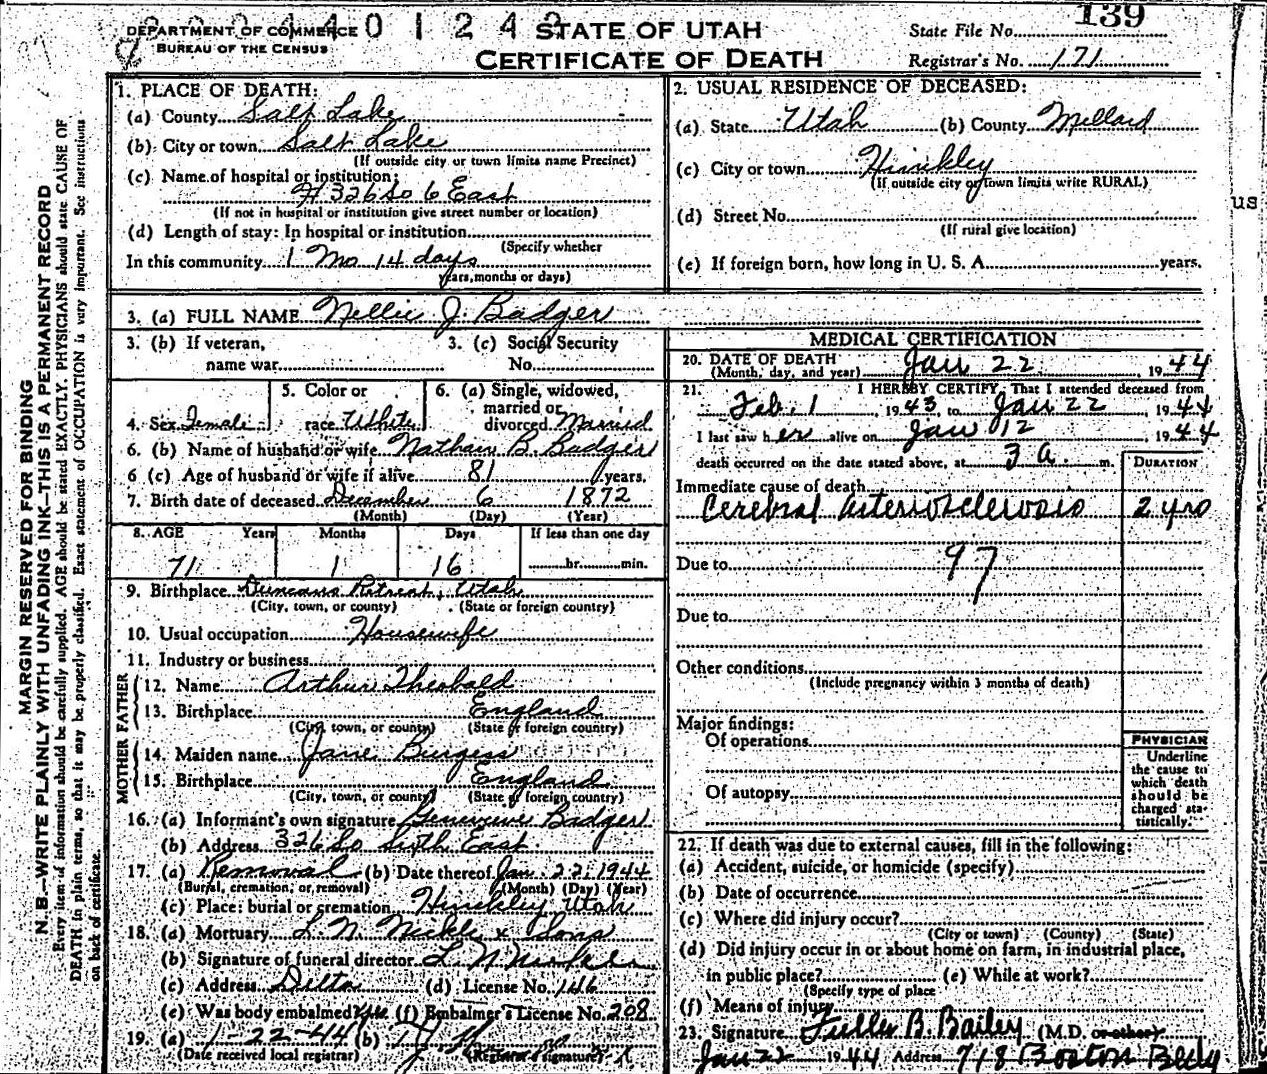 139
DEPARTMENT OF COMMERCE
BUREAU OF THE CENSUS
0 1 2 4
STATE OF UTAH
CERTIFICATE OF DEATH
State File No.
Registrar's No. 171
MARGIN RESERVED FOR BINDING
N.B.—WRITE PLAINLY WITH UNFADING INK—THIS IS A PERMANENT RECORD
Every item of information should be carefully supplied. AGE should be stated EXACTLY. PHYSICIANS should state CAUSE OF
DEATH in plain terms, so that it may be properly classified. Exact statement of OCCUPATION is very important. See instructions
on back of certificate.
1. PLACE OF DEATH:
(a) County Salt Lake
(b) City or town Salt Lake
(If outside city or town limits name Precinct)
(c) Name of hospital or institution:
326 So 6 East
(If not in hospital or institution give street number or location)
(d) Length of stay: In hospital or institution
(Specify whether
In this community 1 Mo 14 days
years, months or days)
2. USUAL RESIDENCE OF DECEASED:
(a) State Utah (b) County Millard
(c) City or town Hinckley
(If outside city or town limits write RURAL)
(d) Street No.
(If rural give location)
(e) If foreign born, how long in U. S. A. years.
us
3. (a) FULL NAME Nellie J. Badger
3. (b) If veteran,
name war
3. (c) Social Security
No.
4. Sex Female
5. Color or
race White
6. (a) Single, widowed,
married or
divorced Married
6. (b) Name of husband or wife Nathan B. Badger
6 (c) Age of husband or wife if alive 81 years.
7. Birth date of deceased December 6 1872
(Month) (Day) (Year)
8. AGE Years Months Days If less than one day
71 1 16 hr. min.
9. Birthplace Duncans Retreat, Utah
(City, town, or county) (State or foreign country)
10. Usual occupation Housewife
11. Industry or business
FATHER
12. Name Arthur Theobald
13. Birthplace England
(City, town, or county) (State or foreign country)
MOTHER
14. Maiden name Jane Burgess
15. Birthplace England
(City, town, or county) (State or foreign country)
16. (a) Informant's own signature Genevieve Badger
(b) Address 326 So Sixth East
17. (a) Removal (b) Date thereof Jan. 22, 1944
(Burial, cremation, or removal) (Month) (Day) (Year)
(c) Place: burial or cremation Hinckley Utah
18. (a) Mortuary L. N. Nickle & Sons
(b) Signature of funeral director L. N.
(c) Address Delta (d) License No. 146
(e) Was body embalmed Yes (f) Embalmer's License No. 208
19. (a) 1-22-44 (b)
(Date received local registrar) (Registrar's signature)
MEDICAL CERTIFICATION
20. DATE OF DEATH Jan 22 1944
(Month, day, and year)
21. I HEREBY CERTIFY, That I attended deceased from
Feb. 1 1943, to Jan 22 1944
I last saw her alive on Jan 12 1944
death occurred on the date stated above, at 3 a. m.
DURATION
Immediate cause of death
Cerebral arteriosclerosis 2 yrs
97
Due to
Due to
Other conditions
(Include pregnancy within 3 months of death)
Major findings:
Of operations
Of autopsy
PHYSICIAN
Underline
the cause to
which death
should be
charged sta-
tistically.
22. If death was due to external causes, fill in the following:
(a) Accident, suicide, or homicide (specify)
(b) Date of occurrence
(c) Where did injury occur?
(City or town) (County) (State)
(d) Did injury occur in or about home on farm, in industrial place,
in public place? (e) While at work?
(Specify type of place
(f) Means of injury
23. Signature Fuller B. Bailey (M.D. or other)
Jan 22 1944 Address 718 Boston Bldg